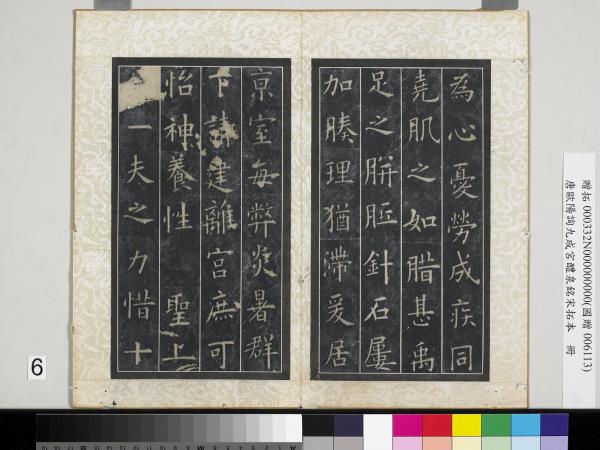 為心憂勞成疾同
堯肌之如腊甚禹
足之胼胝針石屢
加腠理猶滯爰居
京室每弊炎暑群
下請建離宮庶可
怡神養性 聖上
一夫之力惜十
贈拓 000332N000000000(國贈 006113)
唐歐陽詢九成宮醴泉銘宋拓本 冊
6